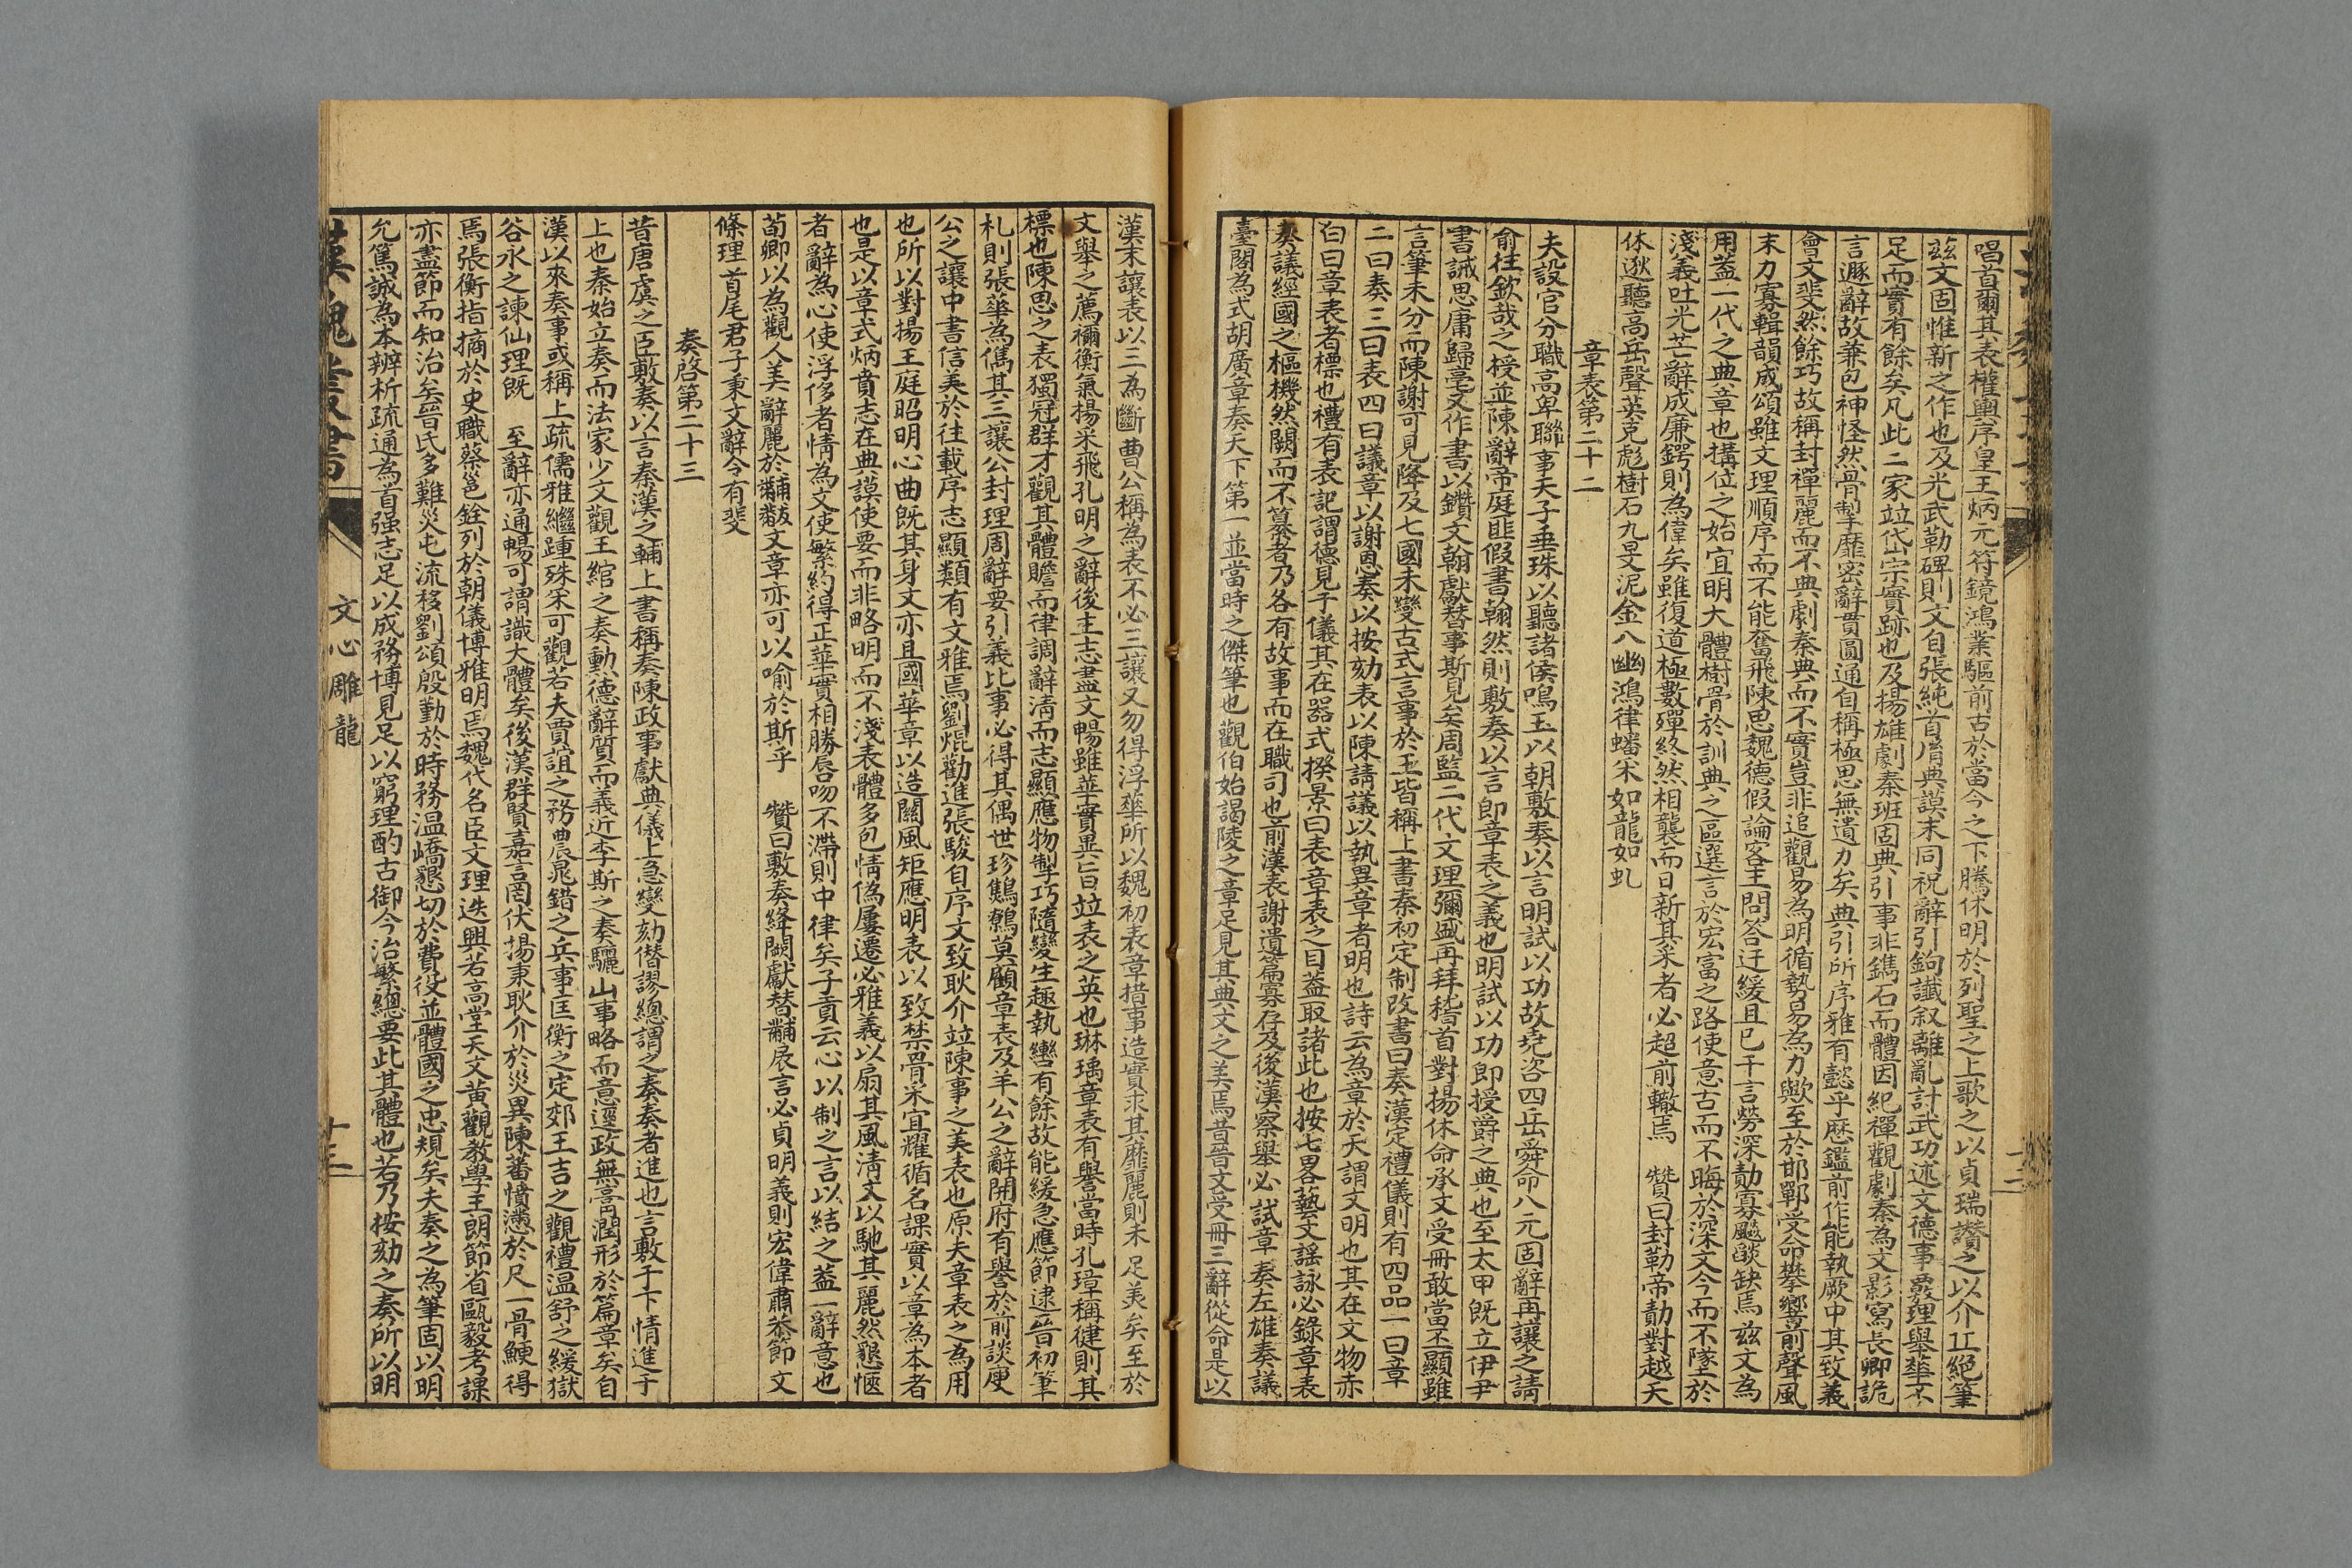 唱首爾其表權輿序皇王炳元符鏡鴻業驅前古於當今之下騰休明於列聖之上歌之以貞瑞讃之以介丘絕筆
兹文固惟新之作也及光武勒碑則文自張純首胤典謨末同祝辭引鉤讖叙離亂計武功述文德事覈理舉華不
足而實有餘矣凡此二家竝岱宗實跡也及揚雄劇秦班固典引事非鐫石而體因紀禪觀劇秦為文影寫長卿詭
言遯辭故兼包神怪然骨掣靡密辭貫圓通自稱極思無遺力矣典引所序雅有懿乎歷鑑前作能執厥中其致義
會文斐然餘巧故稱封禪麗而不典劇秦典而不實豈非追觀易為明循勢易為力歟至於邯鄲受命攀響前聲風
末力寡輯韻成頌雖文理順序而不能奮飛陳思魏德假論客主問答迂緩且已千言勞深勣寡飈燄缺焉兹文為
用蓋一代之典章也搆位之始宜明大體樹骨於訓典之區選言於宏富之路使意古而不晦於深文今而不墜於
淺義吐光芒辭成廉鍔則為偉矣雖復道極數殫終然相襲而日新其采者必超前轍焉 贊曰封勒帝勣對越天
休逖聽高岳聲英克彪樹石九旻泥金八幽鴻律蟠采如龍如虬
章表第二十二
夫設官分職高卑聯事天子垂珠以聽諸侯鳴玉以朝敷奏以言明試以功故堯咨四岳舜命八元固辭再讓之請
俞往欽哉之授並陳辭帝庭匪假書翰然則敷奏以言即章表之義也明試以功即授爵之典也至太甲既立伊尹
書誡思庸歸亳又作書以鑽文翰獻替事斯見矣周監二代文理彌盛再拜稽首對揚休命承文受冊敢當丕顯雖
言筆未分而陳謝可見降及七國未變古式言事於王皆稱上書秦初定制改書曰奏漢定禮儀則有四品一曰章
二曰奏三曰表四曰議章以謝恩奏以按劾表以陳請議以執異章者明也詩云為章於天謂文明也其在文物赤
白曰章表者標也禮有表記謂德見于儀其在器式揆景曰表章表之目蓋取諸此也按七畧藝文謡詠必錄章表
奏議經國之樞機然闕而不纂者乃各有故事而在職司也前漢表謝遺篇寡存及後漢察舉必試章奏左雄奏議
臺閣為式胡廣章奏天下第一並當時之傑筆也觀伯始謁陵之章足見其典文之美焉昔晉文受冊三辭從命是以
漢末讓表以三為斷曹公稱為表不必三讓又勿得浮華所以魏初表章措事造實求其靡麗則未足美矣至於
文舉之薦禰衡氣揚采飛孔明之辭後主志盡文暢雖華實異旨竝表之英也琳瑀章表有譽當時孔璋稱健則其
標也陳思之表獨冠群才觀其體贍而律調辭清而志顯應物掣巧隨變生趣執轡有餘故能緩急應節逮晉初筆
札則張華為儁其三讓公封理周辭要引義比事必得其偶世珍鷦鷯莫顧章表及羊公之辭開府有譽於前談庾
公之讓中書信美於往載序志顯類有文雅焉劉焜勸進張駿自序文致耿介竝陳事之美表也原夫章表之為用
也所以對揚王庭昭明心曲既其身文亦且國華章以造闕風矩應明表以致禁骨采宜耀循名課實以章為本者
也是以章式炳賁志在典謨使要而非略明而不淺表體多包情偽屢遷必雅義以扇其風清文以馳其麗然懇愜
者辭為心使浮侈者情為文使繁約得正華實相勝唇吻不滯則中律矣子貢云心以制之言以結之蓋一辭意也
荀卿以為觀人美辭麗於黼黻文章亦可以喻於斯乎 贊曰敷奏絳闕獻替黼扆言必貞明義則宏偉肅恭節文
條理首尾君子秉文辭令有斐
奏啓第二十三
昔唐虞之臣敷奏以言秦漢之輔上書稱奏陳政事獻典儀上急變劾僭謬總謂之奏奏者進也言敷于下情進于
上也秦始立奏而法家少文觀王綰之奏勲德辭質而義近李斯之奏驪山事略而意逕政無膏潤形於篇章矣自
漢以來奏事或稱上疏儒雅繼踵殊采可觀若夫賈誼之務農晁錯之兵事匡衡之定郊王吉之觀禮温舒之緩獄
谷永之諫仙理既 至辭亦通暢可謂識大體矣後漢群賢嘉言罔伏揚秉耿介於災異陳蕃憤懣於尺一骨鯁得
焉張衡指摘於史職蔡邕銓列於朝儀博雅明焉魏代名臣文理迭興若高堂天文黃觀教學王朗節省甄毅考課
亦盡節而知治矣晉氏多難災屯流移劉頌殷勤於時務温嶠懇切於費役並體國之忠規矣夫奏之為筆固以明
允篤誠為本辨析疏通為首强志足以成務博見足以窮理酌古御今治繁總要此其體也若乃按劾之奏所以明
漢魏叢書
文心雕龍
十三